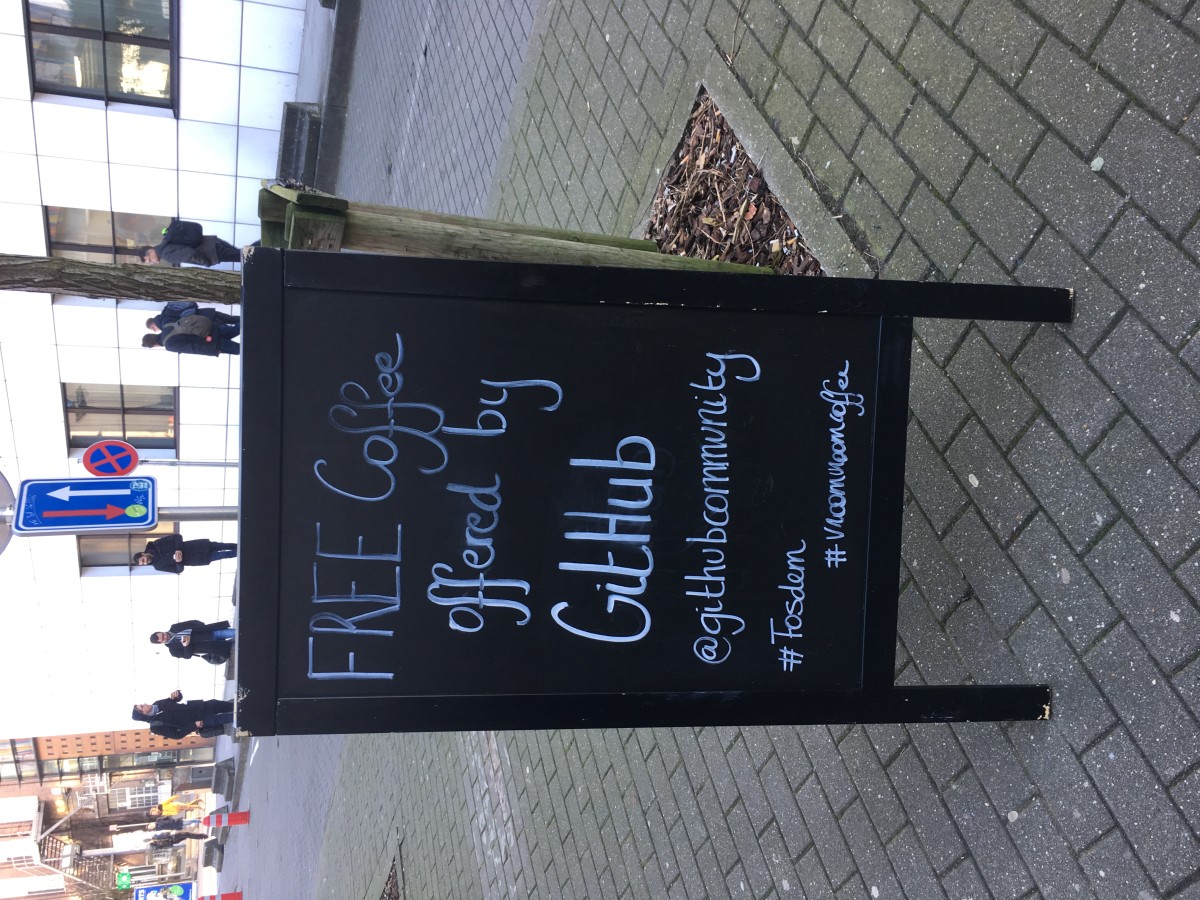 FREE Coffee
offered by
GitHub
@githubcommunity
#Fosdem
#vroomvroomcoffee